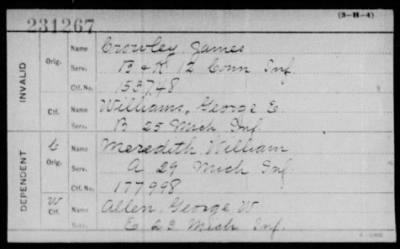 231267
(3-H-4)
INVALID
Orig.
Name Crowley, James
Serv. B & K 12 Conn Inf
Ctf. No. 153748
Ctf.
Name Williams, George E.
Serv. B 25 Mich Inf
DEPENDENT
C
Orig.
Name Meredith William
Serv. A 29 Mich Inf
Ctf. No. 177998
W
Ctf.
Name Allen, George W
Serv. E 23 Mich Inf.